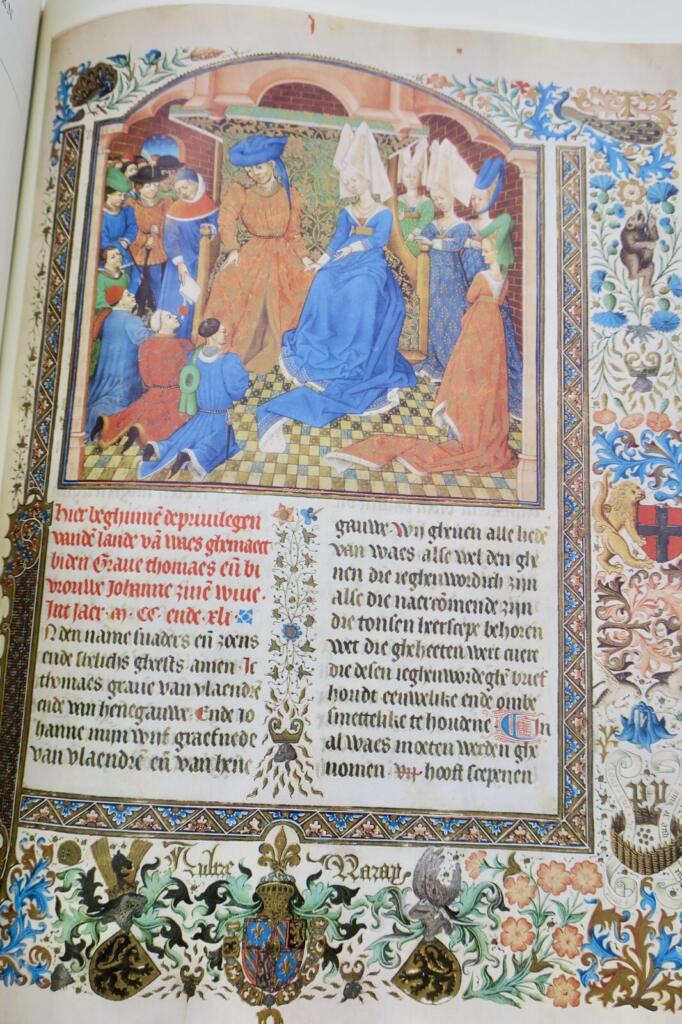 Hier beghinnē de priuilegen
vandē lande vā waes ghemaect
biden Graue thomaes eñ bi
vrouwe Johanne zinē wiue.
Int jaer .m. CC. ende .xli.
N den name svaders eñ zoens
ende shelichs gheests amen. Jc
thomaes graue van vlaendrē
ende van henegauwe. Ende Jo
hanne mijn wijf graefnede
van vlaendrē eñ van hene
gauwe. wij gheuen alle liedē
van waes alse wel den ghe
nen die ieghenwordich zijn
alse die naecomende zijn
die tonsen heerscepe behoren
wet die gheheeten wert cuere
die desen ieghenwordeghē brief
houdt eeuwelike ende ombe
smettelike te houdene. In
al waes moeten werden ghe
nomen .vij. hooft scepenen
Aultre Naray